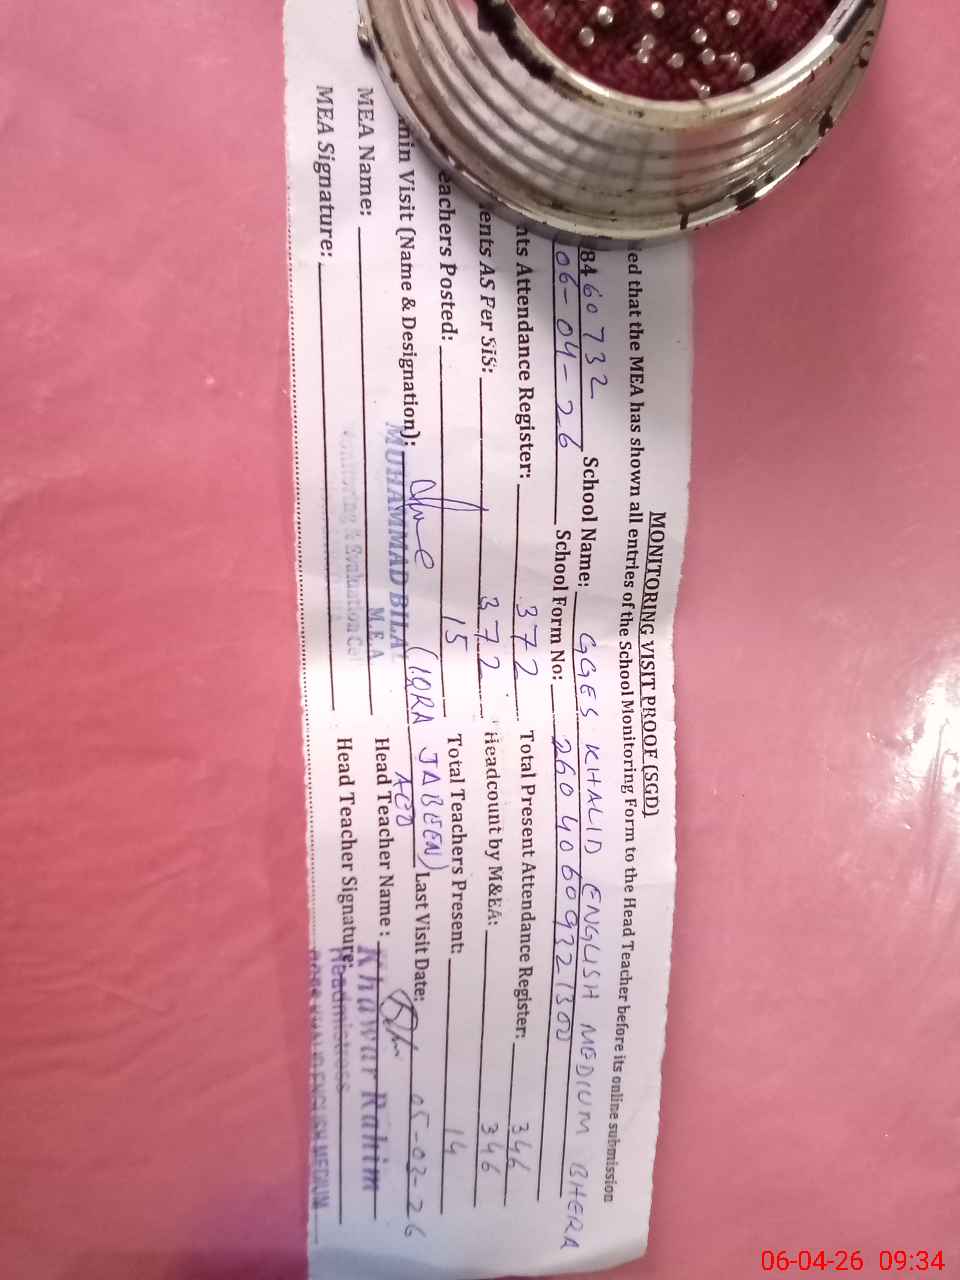 MONITORING VISIT PROOF (SGD)
ied that the MEA has shown all entries of the School Monitoring Form to the Head Teacher before its online submission
8460732 School Name: GGES KHALID ENGLISH MEDIUM BHERA
06-04-26 School Form No: 26040609321300
nts Attendance Register: 372 Total Present Attendance Register: 346
ents AS Per SiS: 372 Headcount by M&EA: 346
eachers Posted: 15 Total Teachers Present: 14
min Visit (Name & Designation): (IQRA JABEEN) Last Visit Date: 05-02-26
AEO
MEA Name: MUHAMMAD BILAL Head Teacher Name : Khawar Rahim
M.E.A
MEA Signature: Monitoring & Evaluation Cel Head Teacher Signature: Headmistress
KHALID ENGLISH MEDIUM
06-04-26 09:34